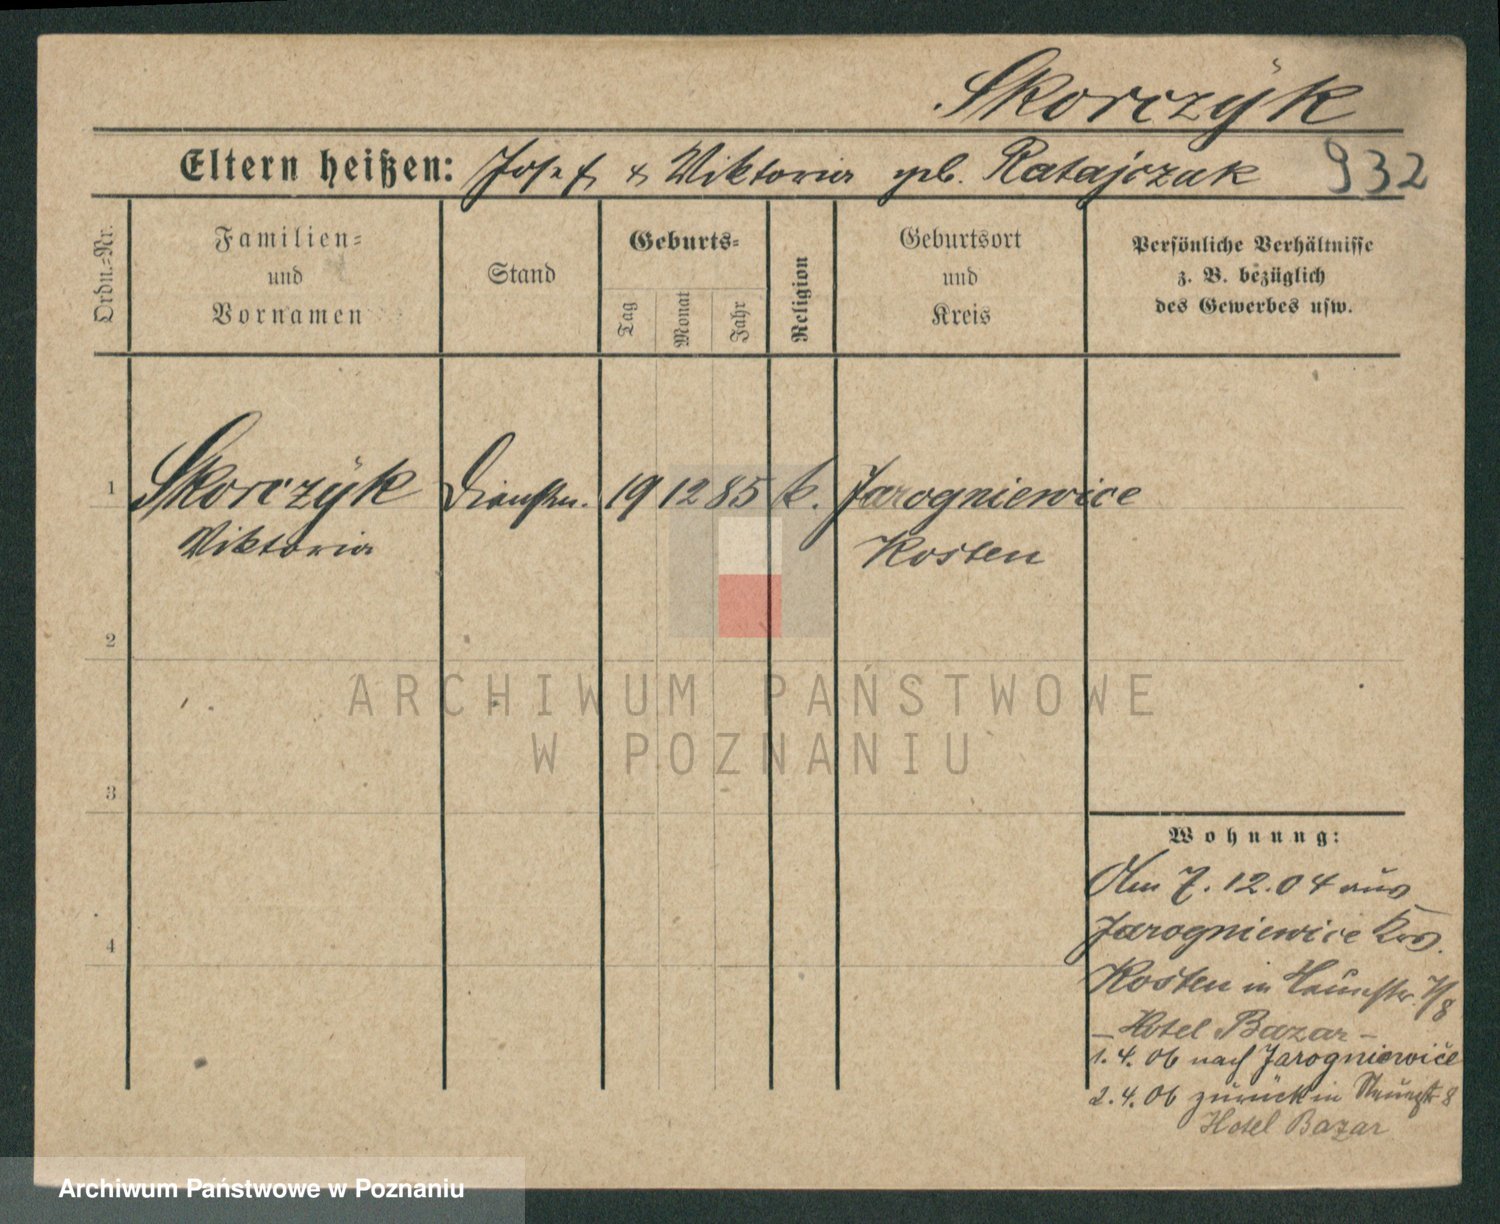 Skorczÿk
Eltern heißen: Josef & Viktoria geb. Ratajczak 932
Ordn.=Nr.
Familien=
und
Vornamen
Stand
Geburts=
Tag
Monat
Jahr
Religion
Geburtsort
und
Kreis
Persönliche Verhältnisse
z. B. bezüglich
des Gewerbes usw.
1 Skorczÿk Dienstm. 19 12 85 k. Jarogniewice
Viktoria Kosten
2
3
4
Wohnung:
Am 7. 12. 04 aus
Jarogniewice Krs.
Kosten in
– Hotel Bazar –
1. 4. 06 nach Jarogniewice
2. 4. 06 zurück in 8
Hotel Bazar
ARCHIWUM PAŃSTWOWE
W POZNANIU
Archiwum Państwowe w Poznaniu